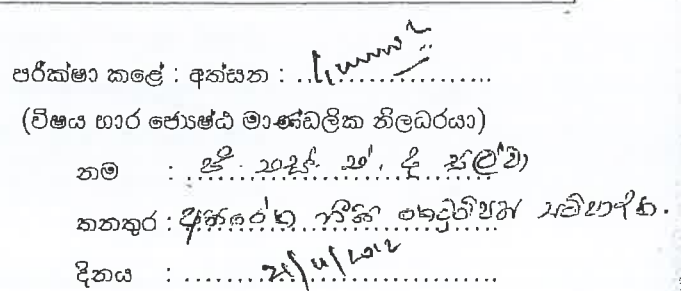 පරීක්ෂා කළේ : අත්සන :
(විෂය භාර ජ්‍යෙෂ්ඨ මාණ්ඩලික නිලධරයා)
නම : ජී. එස්. ද සිල්වා
තනතුර : අතිරේක නීති කෙටුම්පත් සම්පාදක.
දිනය :